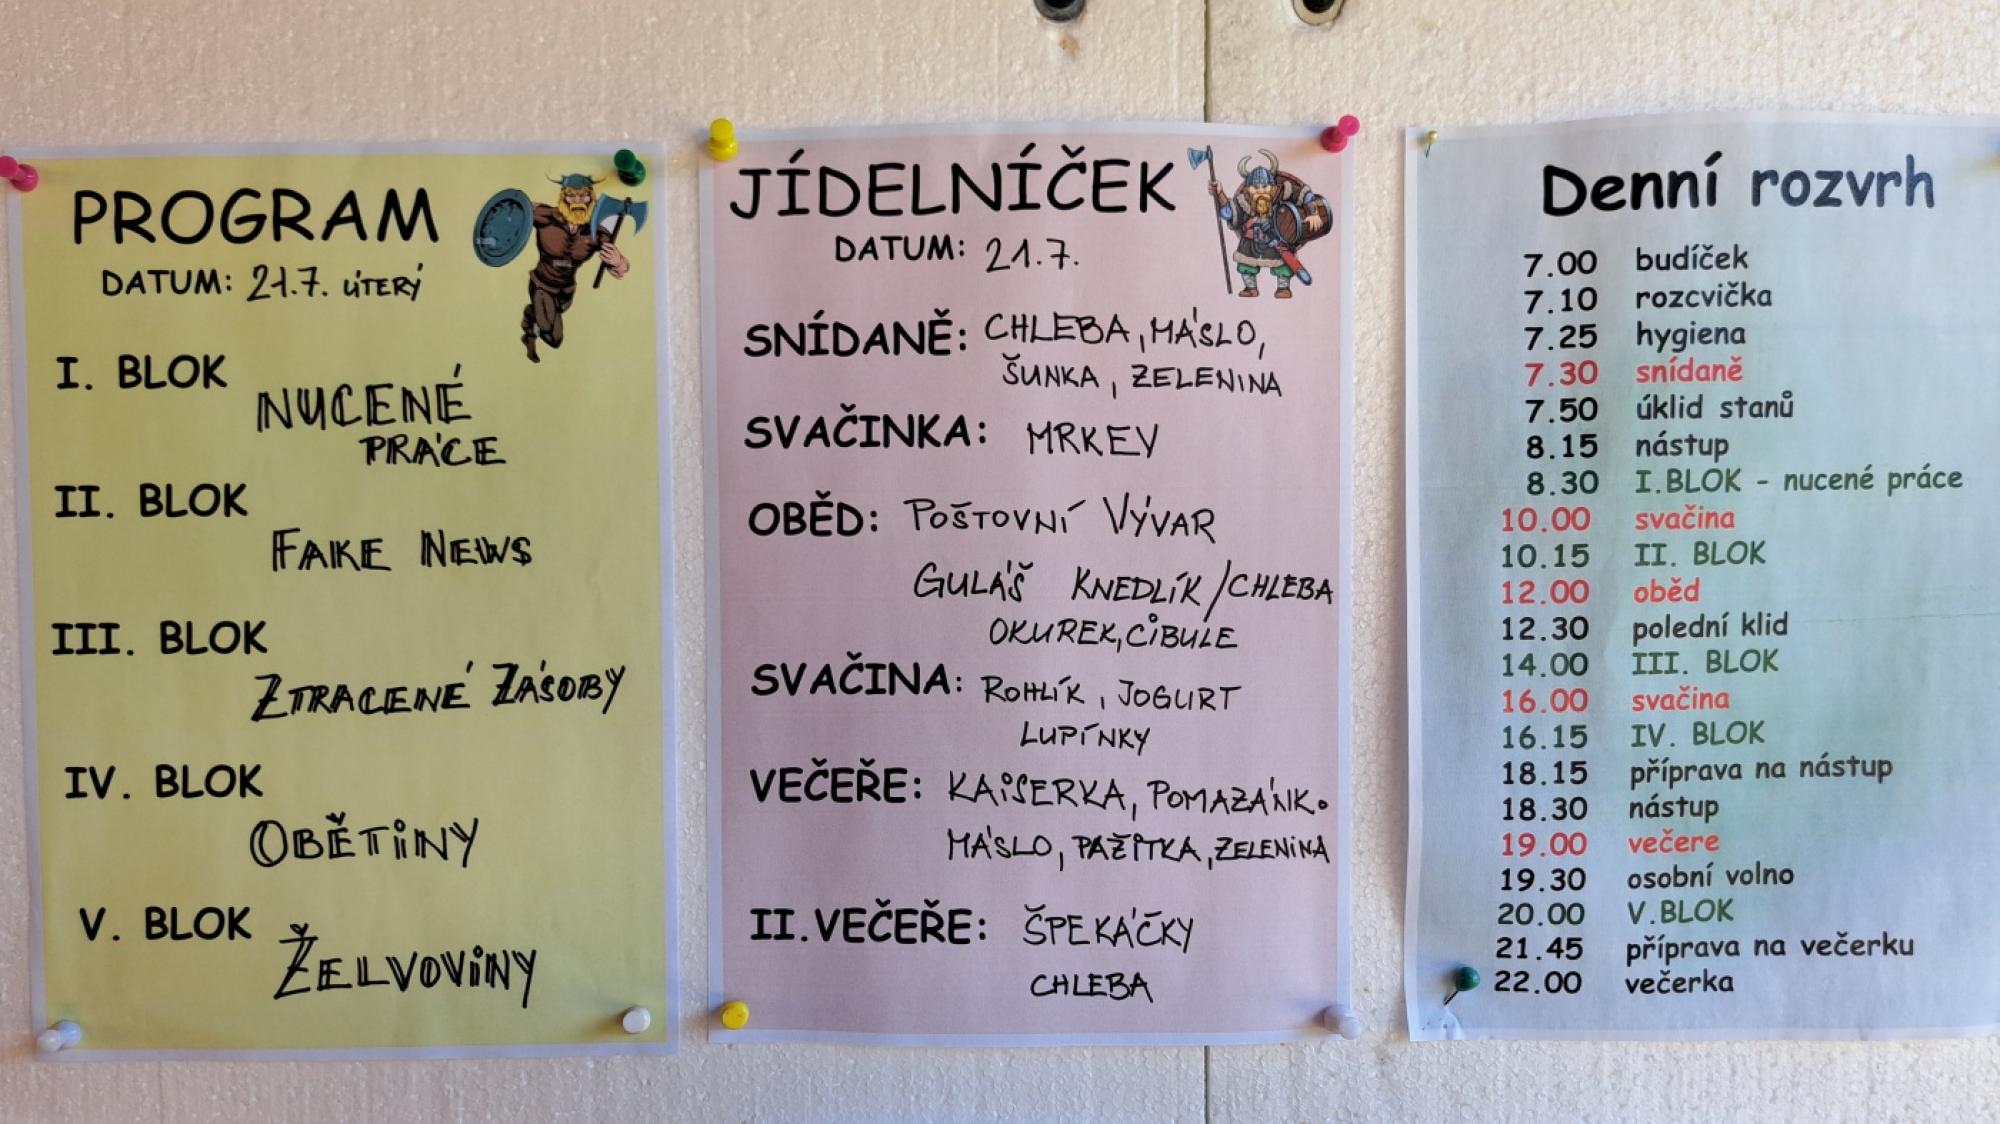 PROGRAM
DATUM: 21.7. ÚTERÝ
I. BLOK
NUCENÉ
PRÁCE
II. BLOK
FAKE NEWS
III. BLOK
ZTRACENÉ ZÁSOBY
IV. BLOK
OBĚTINY
V. BLOK
ŽELVOVINY
JÍDELNÍČEK
DATUM: 21.7.
SNÍDANĚ: CHLEBA, MÁSLO,
ŠUNKA, ZELENINA
SVAČINKA: MRKEV
OBĚD: POŠTOVNÍ VÝVAR
GULÁŠ KNEDLÍK/CHLEBA
OKUREK, CIBULE
SVAČINA: ROHLÍK, JOGURT
LUPÍNKY
VEČEŘE: KAISERKA, POMAZÁNK.
MÁSLO, PAŽITKA, ZELENINA
II. VEČEŘE: ŠPEKÁČKY
CHLEBA
Denní rozvrh
7.00 budíček
7.10 rozcvička
7.25 hygiena
7.30 snídaně
7.50 úklid stanů
8.15 nástup
8.30 I.BLOK - nucené práce
10.00 svačina
10.15 II. BLOK
12.00 oběd
12.30 polední klid
14.00 III. BLOK
16.00 svačina
16.15 IV. BLOK
18.15 příprava na nástup
18.30 nástup
19.00 večere
19.30 osobní volno
20.00 V.BLOK
21.45 příprava na večerku
22.00 večerka